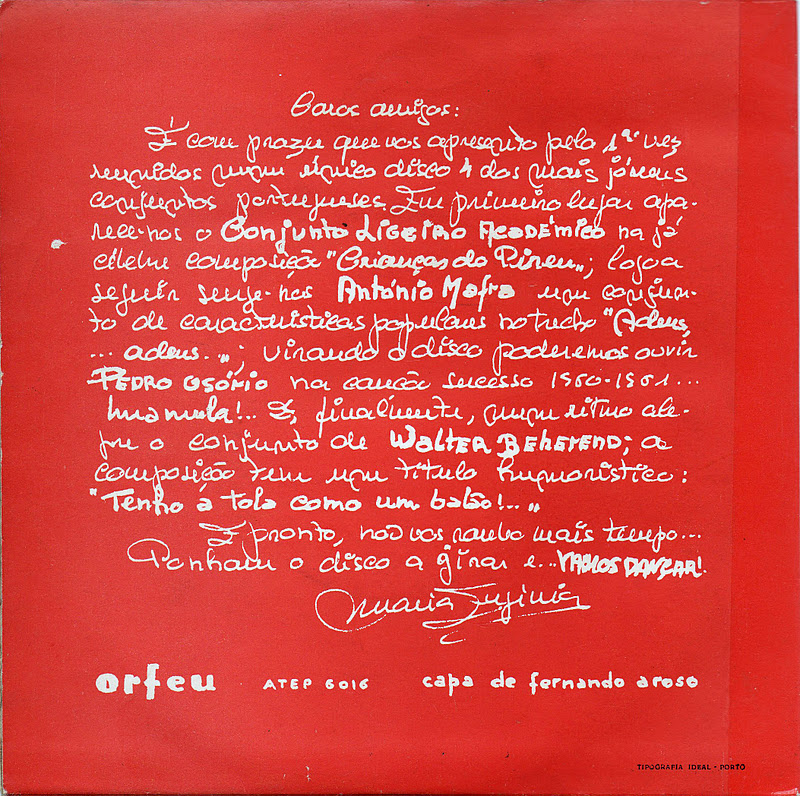 Caros amigos:
É com prazer que vos apresento pela 1ª vez
reunidos num único disco 4 dos mais jóvens
conjuntos portugueses. Em primeiro lugar apa-
rece-nos o Conjunto Ligeiro Académico na já
célebre composição "Crianças do Pireu„; logo a
seguir surge-nos António Mafra um conjun-
to de características populares no trecho "Adeus,
... adeus..„; virando o disco poderemos ouvir
PEDRO OSÓRIO na canção sucesso 1960-1961...
mamula!.. E, finalmente, num ritmo ale-
gre o conjunto de WALTER BEHEREND; a
composição tem um título humorístico:
"Tenho a tola como um balão!..„
E pronto, não vos roubo mais tempo...
Ponham o disco a girar e... VAMOS DANÇAR!
Maria Eugénia
orfeu ATEP 6016 capa de fernando aroso
TIPOGRAFIA IDEAL - PORTO